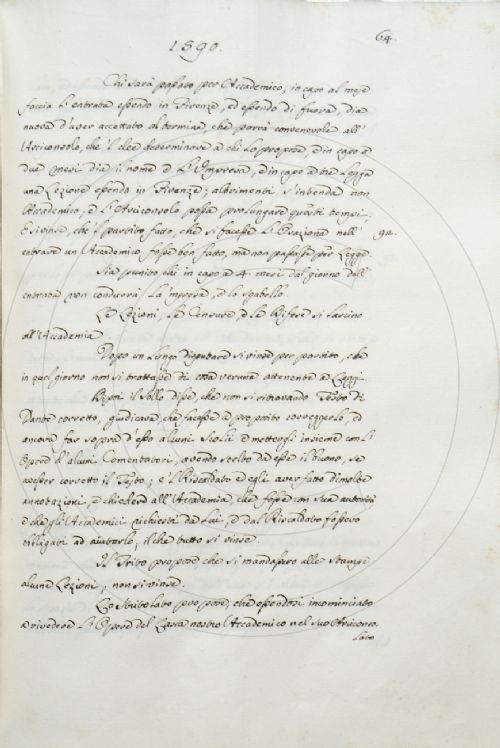 64.
1590.
Chi sarà passato per Accademico, in capo al mese
faccia l'entrata essendo in Firenze, ed essendo di fuora, dia
nuova d'aver accettato al termine, che parrà convenevole all'
Arciconsolo, che 'l dee determinare a chi lo propone, e in capo a
due mesi dia il nome e l'Impresa, e in capo a tre legga
una Lezione essendo in Firenze; altrimenti s'intenda non
Accademico, e l'Arciconsolo possa prolungare questi tempi.
E si vinse, che 'l partito fatto, che si facesse l'Orazione nell'
92.
entrare un Accademico fosse ben fatto, ma non passasse per Legge.
Sia punito chi in capo a 4. mesi dal giorno dell'
entrata non condurrà la impresa, e lo sgabello.
Le Lezioni, le Censure, e le Difese si lascino
all'Accademia.
Dopo un lungo disputare si vinse per partito, che
in quel giorno non si trattasse di cosa veruna attenente a Leggi.
il Sollo disse, che non si ritrovando Testo di
Dante corretto, giudicava che facesse a proposito correggerlo, e
ancora far sopra d'esso alcuni Scolii e mettergli insieme con li
Spositori d'alcuni Comentatori, avendo scelto da essi il buono, se
corretto il Testo; e 'l Riscaldato ed egli aver fatto di molte
annotazioni, e chiedere all'Accademia, che fosse con sua autorità
e che gli Accademici richiesti da Lui, e dal Riscaldato fossero
obbligati ad aiutarlo; il che tutto si vinse.
Il Trito propose, che si mandassero alle Stampe
alcune Lezioni; non si vinse.
Lo Stritolato propose, che essendosi incominciato
a rivedere l'Opere del Lasca nostro Accademico nel suo Aricconso
lato